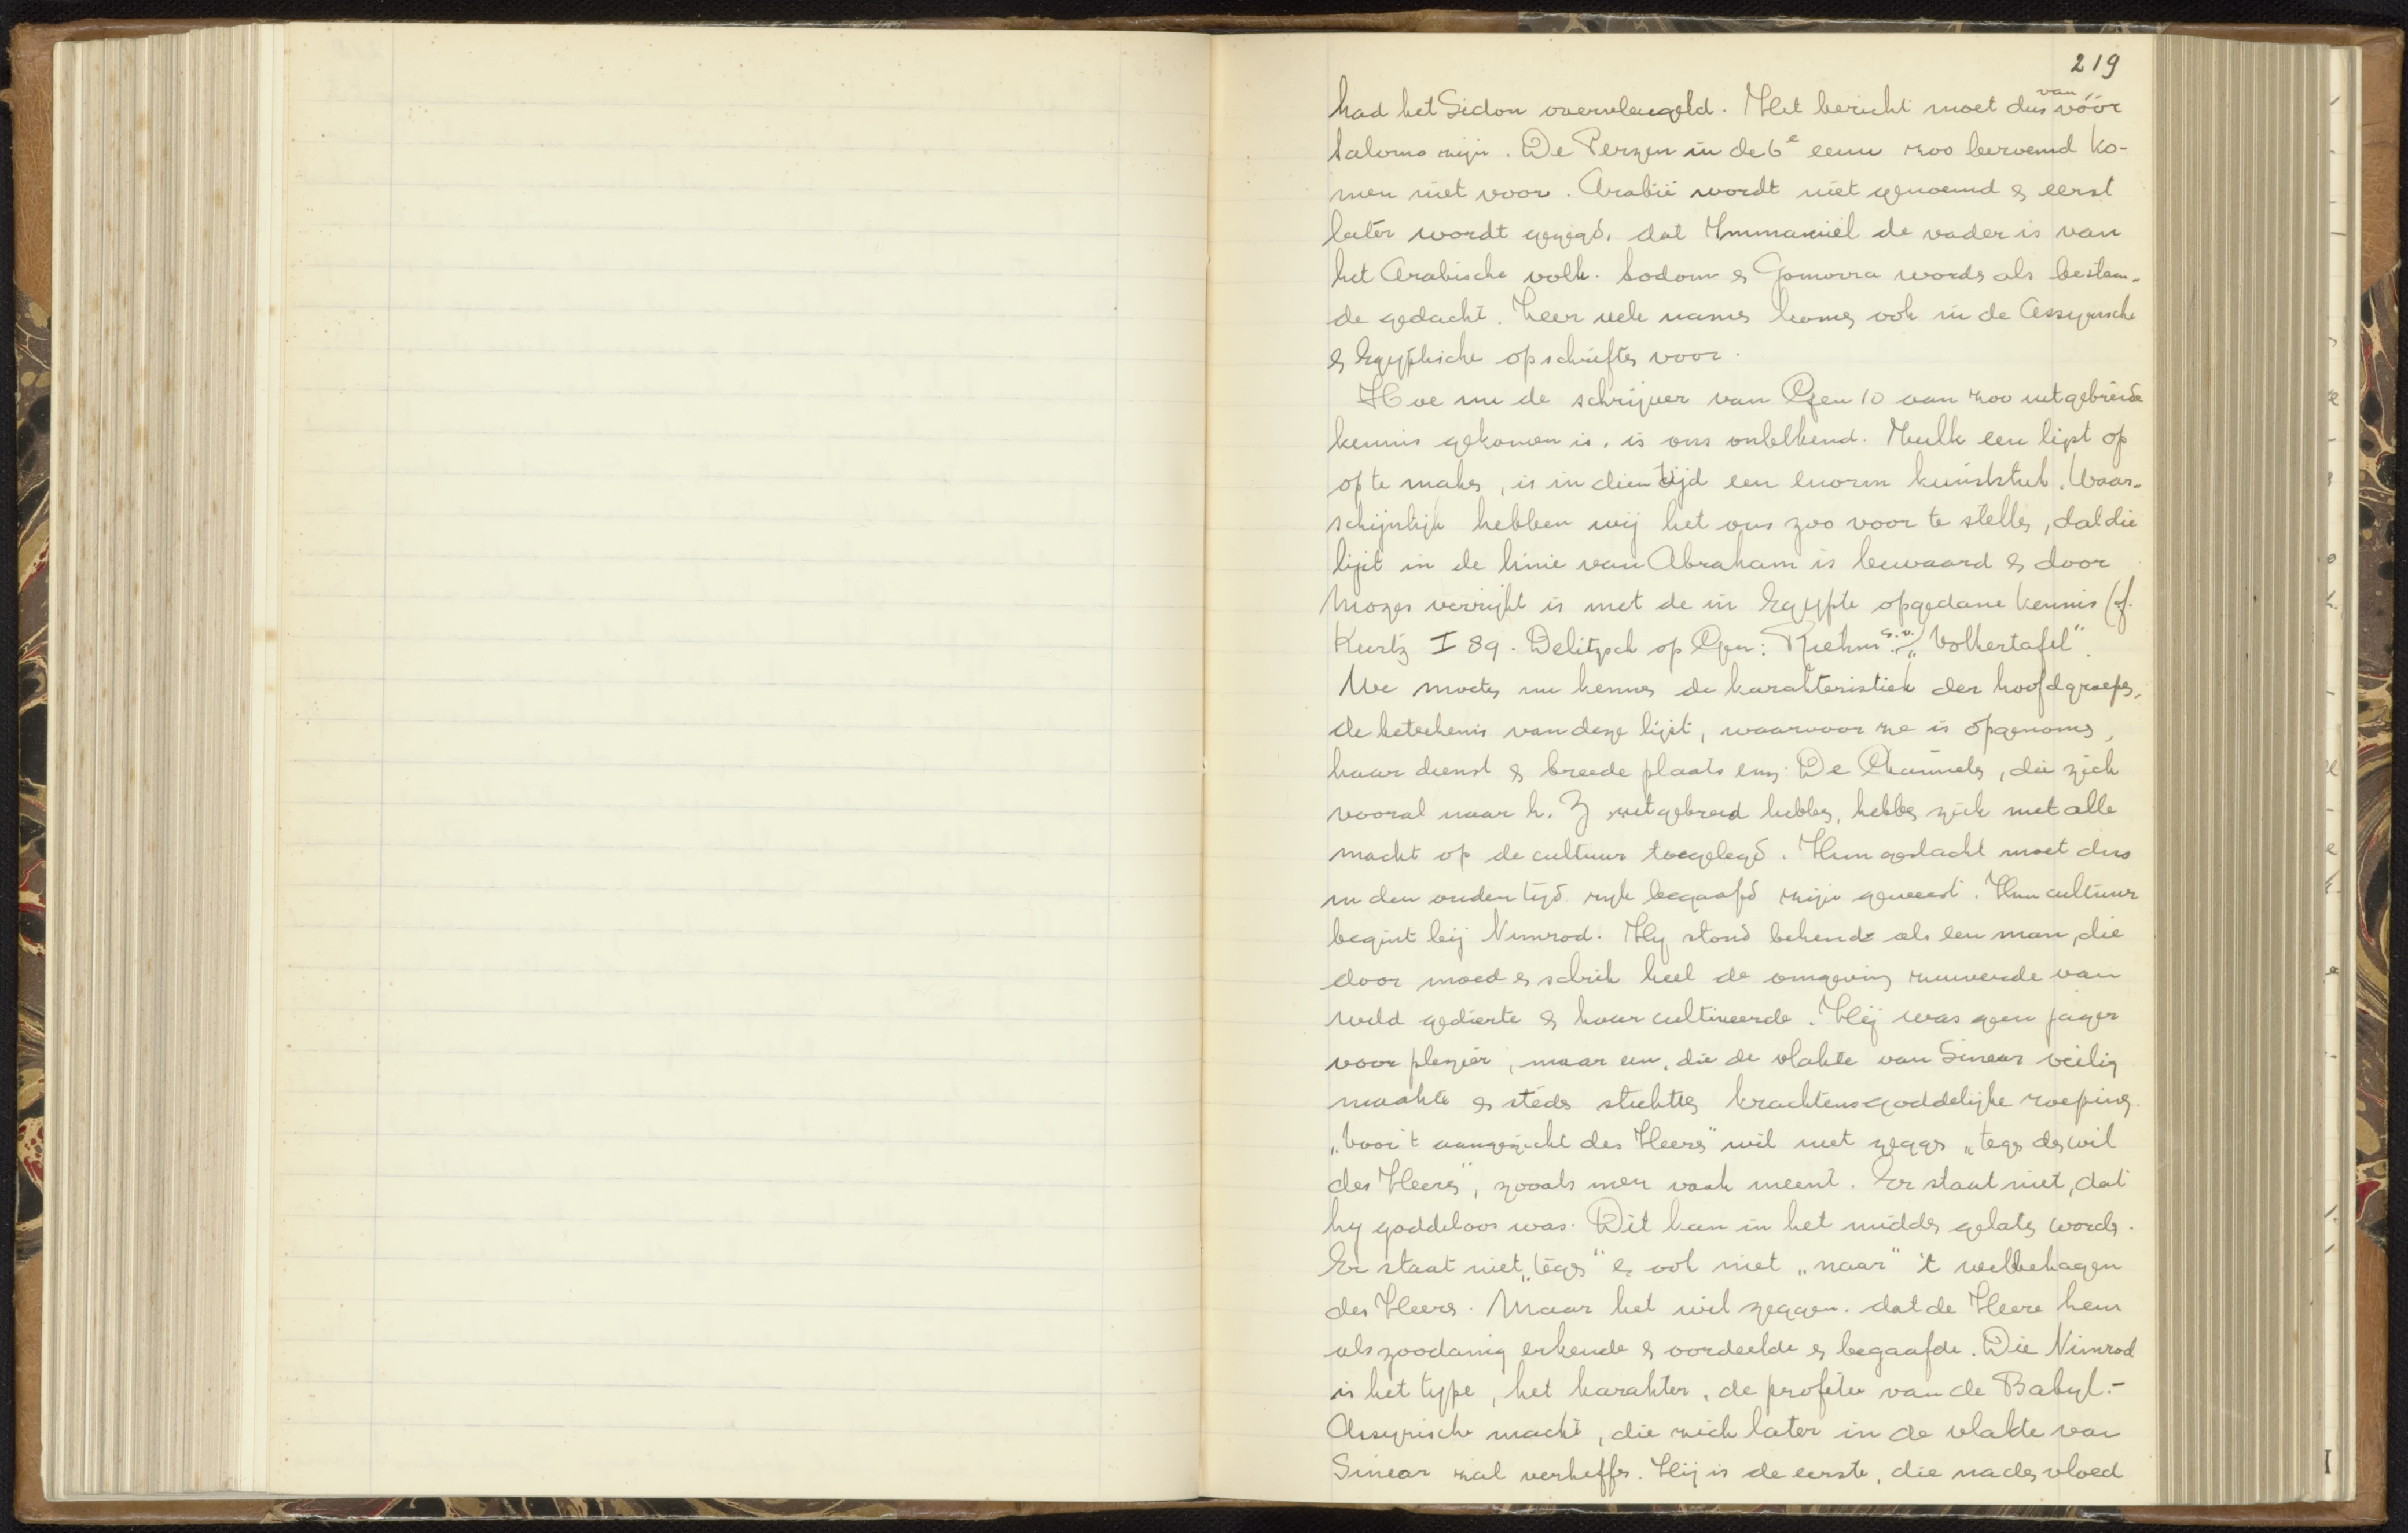 219
had het Sidon overvleugeld. Het bericht moet dus van vóór
Salomo zijn. De Perzen in de 6e eeuw zoo beroemd ko-
men niet voor. Arabië wordt niet genoemd & eerst
later wordt gezegd, dat Immaniël de vader is van
het Arabische volk. Sodom & Gomorra words als bestaan-
de gedacht. Zeer vele names komes ook in de Assyrische
& Egyptische opschriftes voor.
Hoe nu de schrijver van Gen 10 aan zoo uitgebreide
kennis gekomen is, is ons onbekend. Zulk een lijst op
op te makes, is in dien tijd een enorm kunststuk. Waar-
schijnlijk hebben wij het ons zoo voor te stelles, dat die
lijst in de linie van Abraham is bewaard & door
Mozes verrijkt is met de in Egypte opgedane kennis (cf.
Kurtz I 89. Delitzsch op Gen: Riehm s.v. „Volkertafel".
We moetes nu kennes de karakteristiek der hoofdgroepes,
de beteekenis van deze lijst, waarvoor ze is opgenomes,
haar dienst & breede plaats enz. De Chamietes, die zich
vooral naar h. Z uitgebreid hebbes, hebbes zich met alle
macht op de cultuur toegelegd. Hun geslacht moet dus
in den ouden tijd rijk begaafd zijn geweest. Hun cultuur
begint bij Nimrod. Hy stond bekend als een man, die
door moed & schrik heel de omgeving zuiverde van
wild gedierte & haar cultiveerde. Hij was geen jager
voor plezier, maar een, die de vlakte van Sinear veilig
maakte & steds stichttes krachtens goddelijke roeping.
„Voor 't aangezicht des Heers" wil niet zegges „teges des wil
des Heers", zooals men vaak meent. Er staat niet, dat
hy goddeloos was. Dit kan in het middes gelates words.
Er staat niet „teges" & ook niet „naar" 't welbehagen
des Heers. Maar het wil zeggen, dat de Heere hem
als zoodanig erkende & oordeelde & begaafde. Die Nimrod
is het type, het karakter, de profetie van de Babyl.-
Assyrische macht, die zich later in de vlakte van
Sinear zal verheffes. Hij is de eerste, die na des vloed